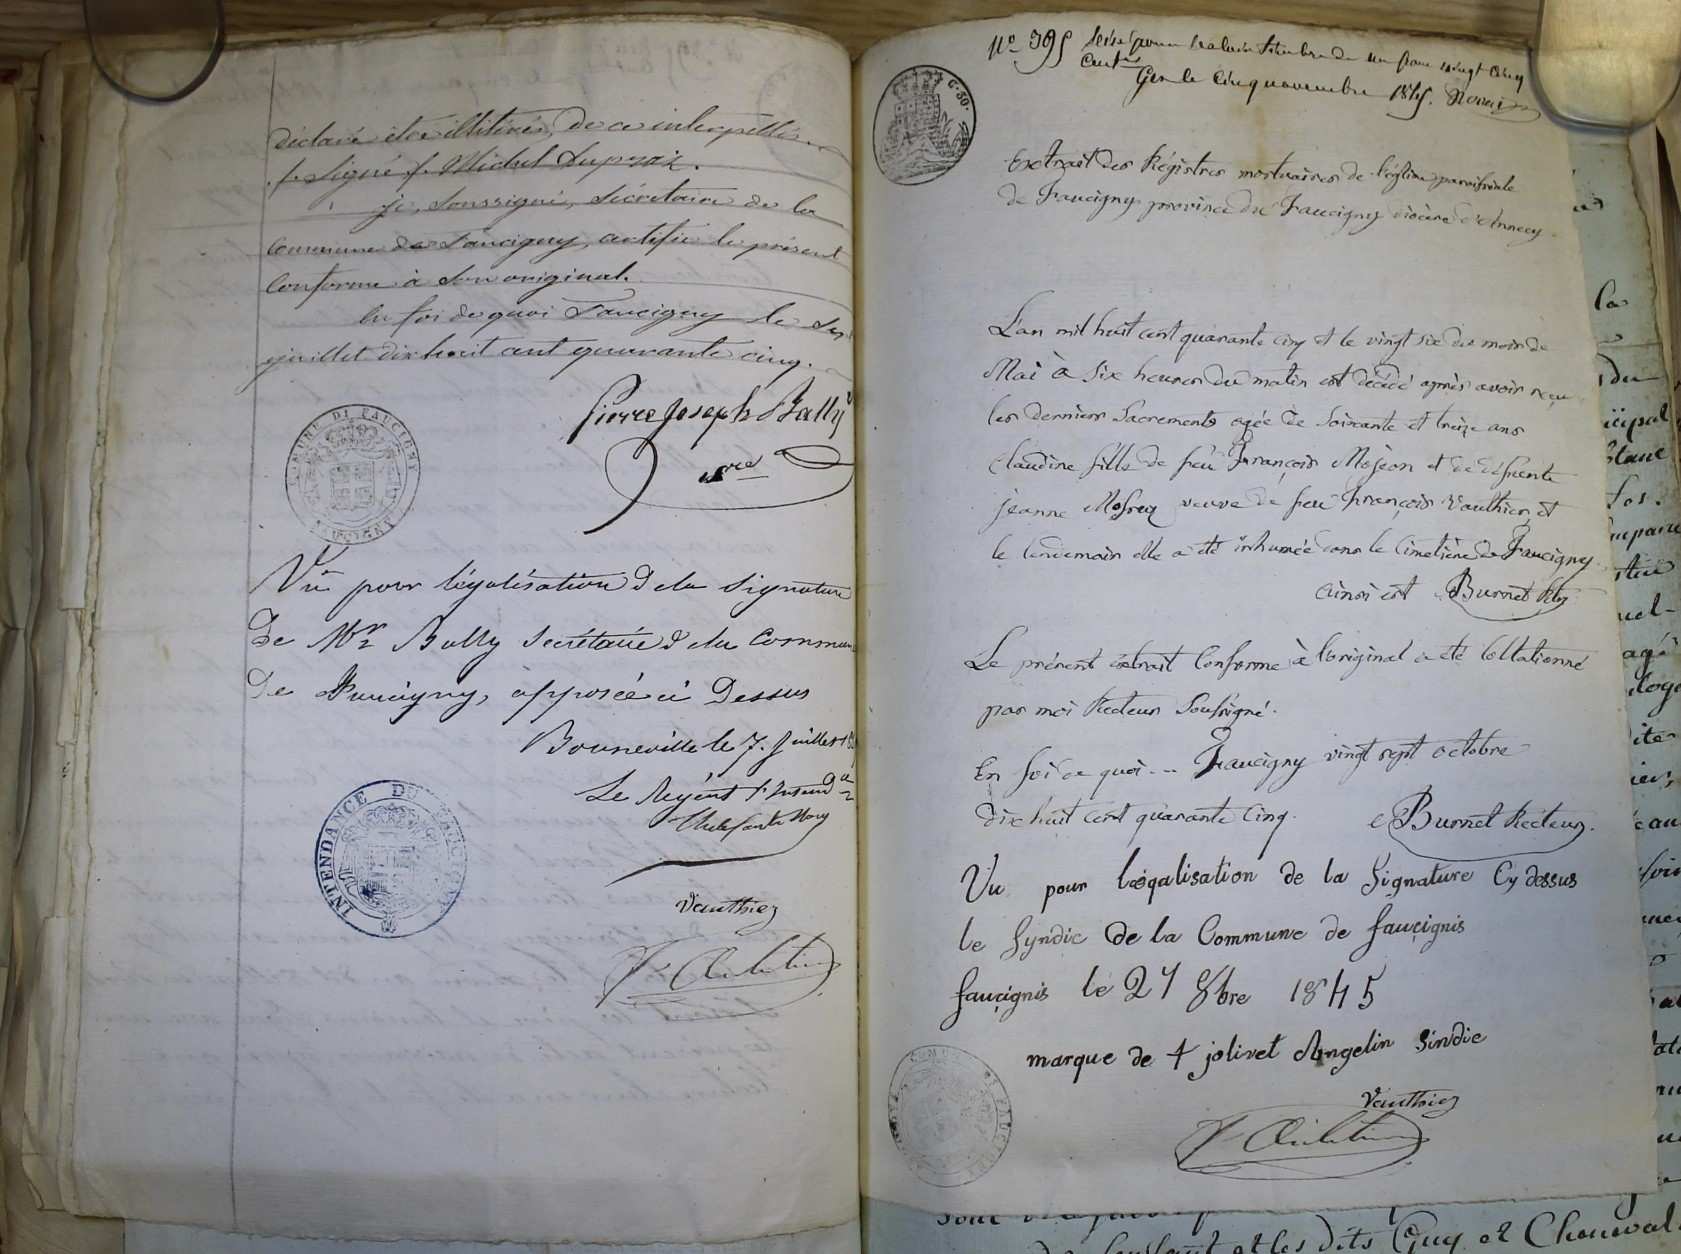 déclaré être illitirés, de ce interpellés.
f. Signé f. Michel Dupraz.
je, soussigné, sécrétaire de la
commune de Faucigny, certifie le présent
conforme à son original.
En foi de quoi Faucigny le six
juillet dix huit cent quarante cinq.
Pierre Joseph Bally
sre
COMUNE DI FAUCIGNY
Vu pour légalisation de la Signature
De Mr Bally secrétaire de la Commune
De Faucigny, apposée ci Dessus
Bonneville le 7. Juillet 18
Le Régent l'Intend
INTENDANCE DU FAUCIGNY
Vauthiez
No 395
cent
le cinq novembre 1845.
C. 30.
Extrait des Régistres mortuaires de l'église paroissiale
de Faucigny province du Faucigny diocèse d'Annecy.
L'an mil huit cent quarante cinq et le vingt six du mois de
Mai à six heures du matin est décédé après avoir reçu
les derniers Sacrements agée de soixante et treize ans
Claudine fille de feu François Mojeon et de défunte
jeanne veuve de feu françois Vauthier, et
le lendemain elle a été inhumée dans le Cimetière de Faucigny
ainsi est Burnet Rtr
Le présent extrait Conforme à l'original a été Collationné
par moi Recteur Soussigné.
En foi de quoi... Faucigny vingt sept octobre
dix huit cent quarante cinq. Burnet Recteur.
Vu pour laégalisation de la Signature Cy dessus
le Syndic de la Commune de fauçignis
fauçignis le 27 8bre 1845
marque de + jolivet Angelin Sindic
COMUNE DI FAUCIGNY
Vauthiez